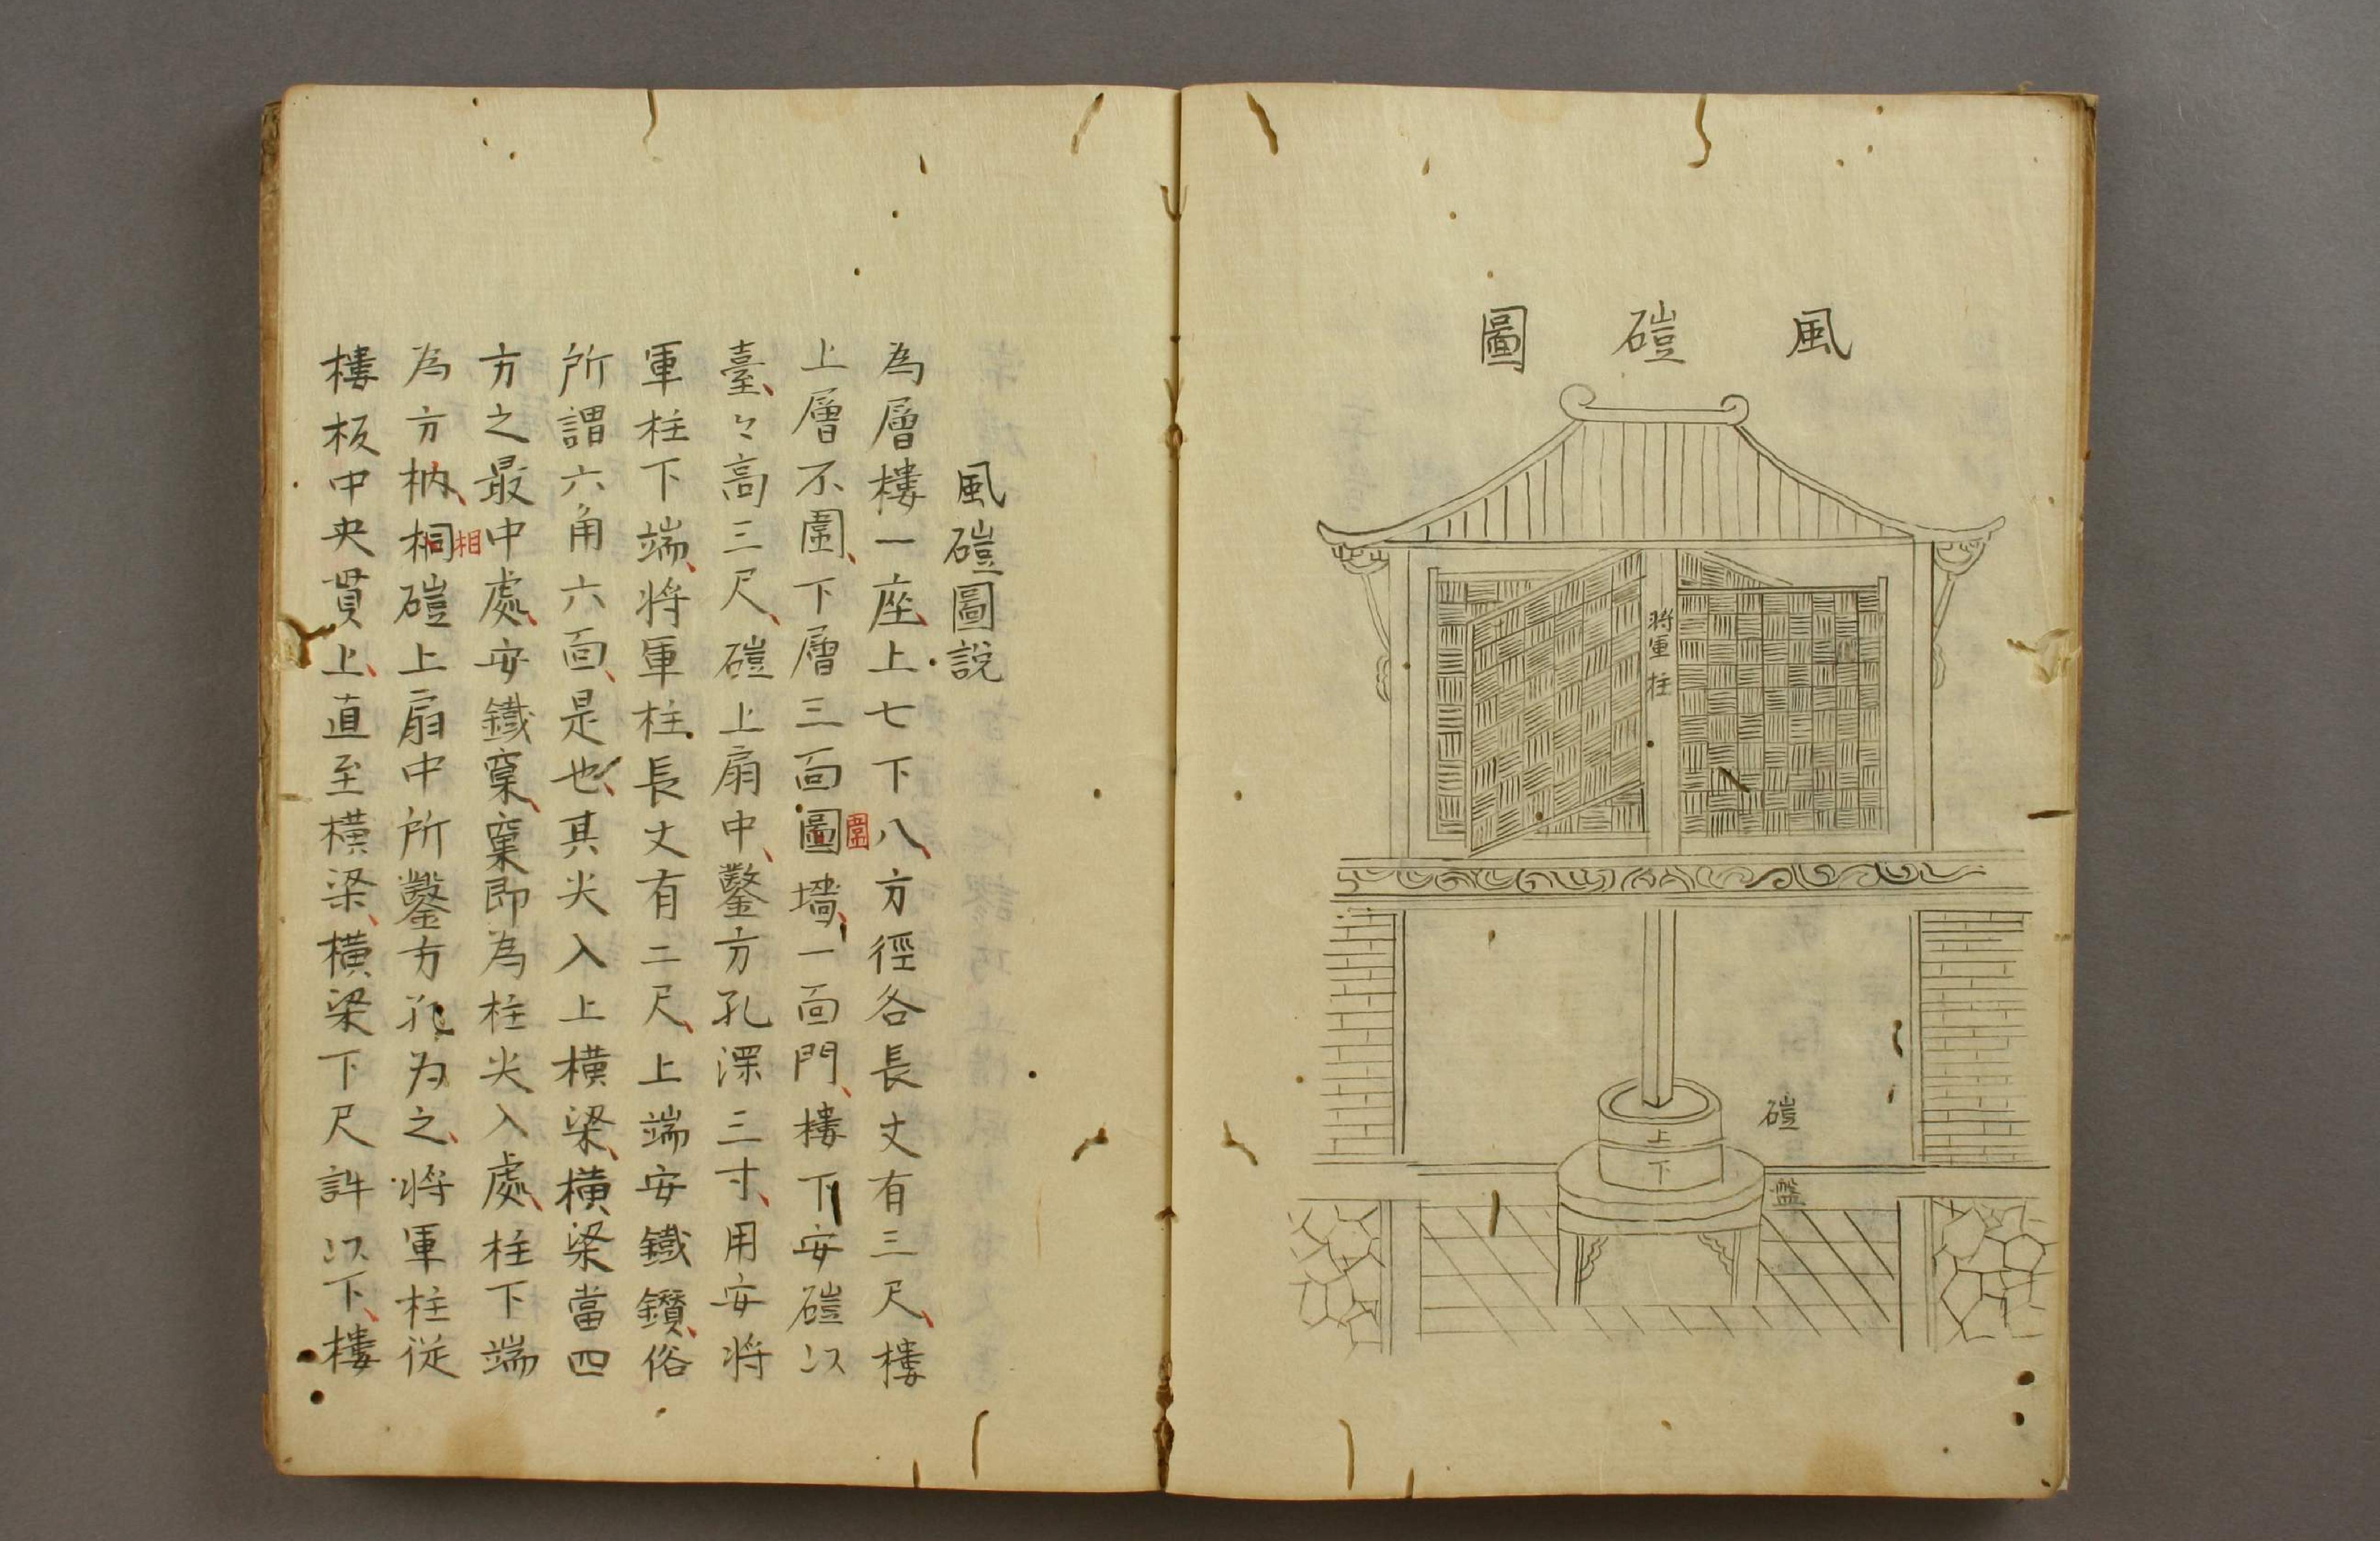 風磑圖
將軍柱
磑
上
下
盤
風磑圖說
為層樓一座上七下八方徑各長丈有三尺樓
上層不圍下層三面圖墻一面門樓下安磑以
圍
臺々高三尺磑上扇中鑿方孔深三寸用安将
軍柱下端将軍柱長丈有二尺上端安鐵鑽俗
所謂六角六面是也其尖入上橫梁橫梁當四
方之最中處安鐵窠窠即為柱尖入處柱下端
為方枘桐磑上扇中所鑿方孔为之将軍柱従
相
樓板中央貫上直至橫梁橫梁下尺許以下樓